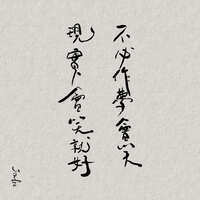 不必作夢會笑
現實會笑就好